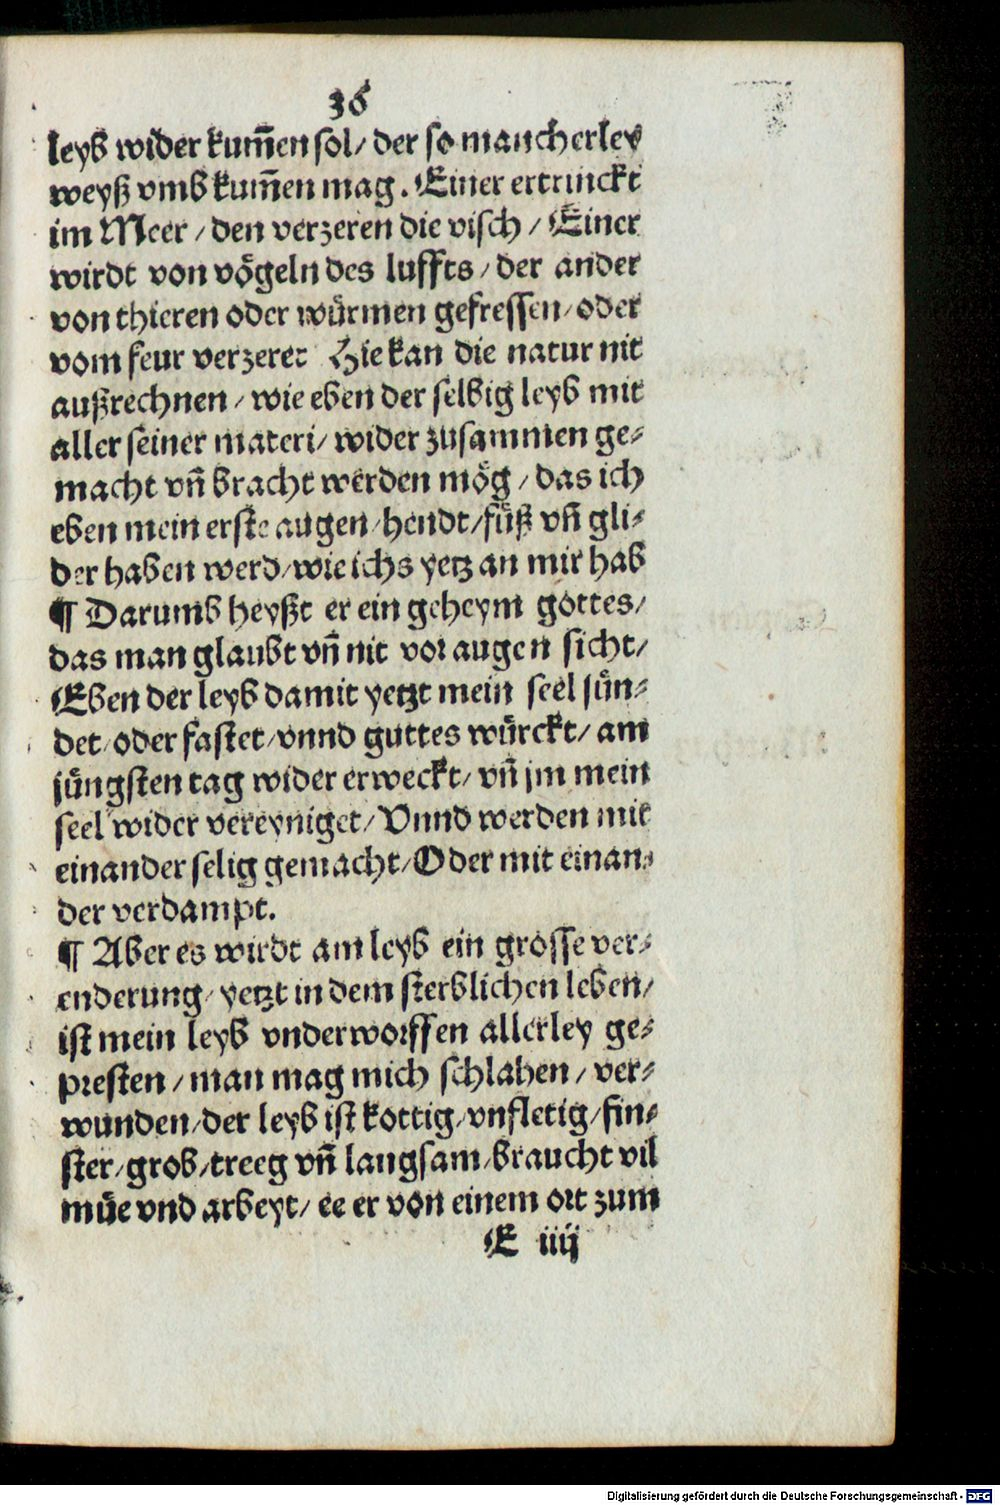 36
leyb wider kum̄en sol/ der so mancherley
weyß vmb kum̄en mag. Einer ertrinckt
im Meer / den verzeren die visch / Einer
wirdt von vögeln des luffts / der ander
von thieren oder würmen gefressen / oder
vom feur verzeret Hie kan die natur nit
außrechnen / wie eben der selbig leyb mit
aller seiner materi/ wider zusammen ge⸗
macht vn̄ bracht werden mög / das ich
eben mein erste augen / hendt / füß vn̄ gli⸗
der haben werd / wie ichs yetz an mir hab
¶ Darumb heyßt er ein geheym gottes/
das man glaubt vn̄ nit vor augen sicht/
Eben der leyb damit yetzt mein seel sün⸗
det / oder fastet / vnnd guttes würckt/ am
jüngsten tag wider erweckt/ vn̄ jm mein
seel wider vereyniget/ Vnnd werden mit
einander selig gemacht/ Oder mit einan⸗
der verdampt.
¶ Aber es wirdt am leyb ein grosse ver⸗
enderung / yetzt in dem sterblichen leben/
ist mein leyb vnderworffen allerley ge⸗
presten / man mag mich schlahen / ver⸗
wunden / der leyb ist kottig / vnfletig / fin⸗
ster / grob / treeg vn̄ langsam / braucht vil
müe vnd arbeyt/ ee er von einem ort zum
E iiij
Digitalisierung gefördert durch die Deutsche Forschungsgemeinschaft - DFG